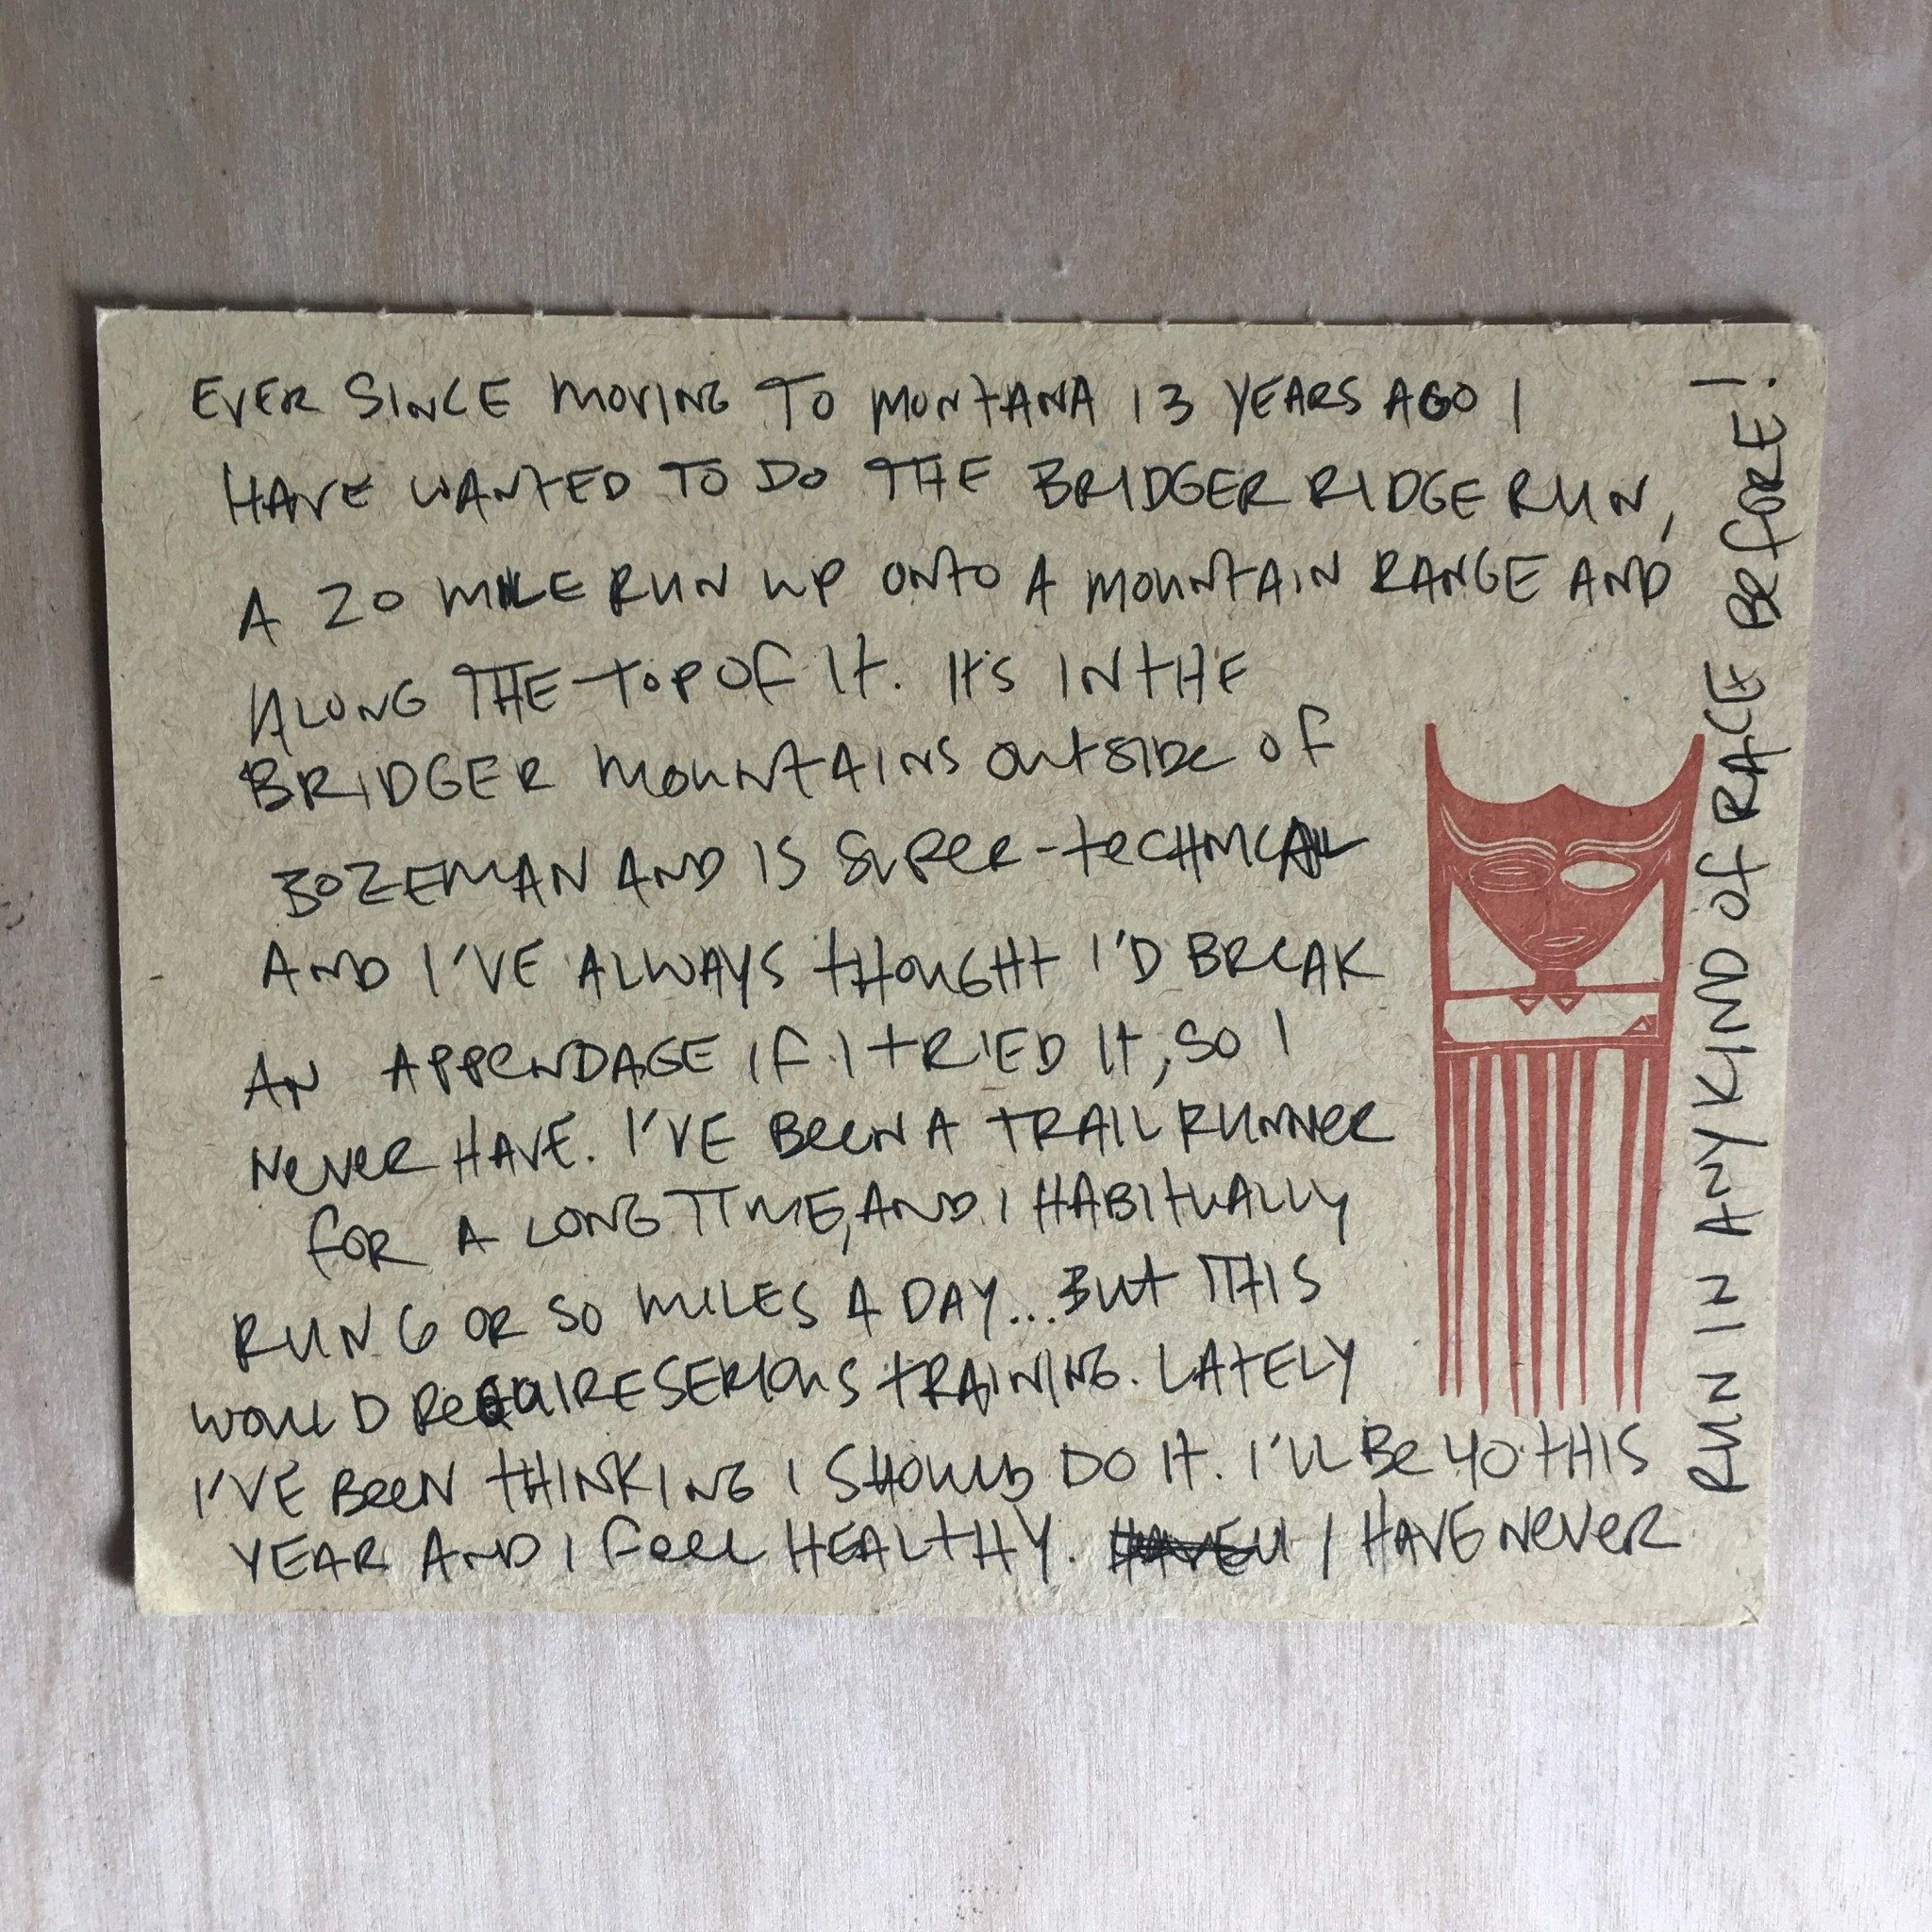 EVER SINCE MOVING TO MONTANA 13 YEARS AGO I
HAVE WANTED TO DO THE BRIDGER RIDGE RUN,
A 20 MILE RUN UP ONTO A MOUNTAIN RANGE AND
ALONG THE TOP OF IT. IT'S IN THE
BRIDGER MOUNTAINS OUTSIDE OF
BOZEMAN AND IS SUPER-TECHNICAL
AND I'VE ALWAYS THOUGHT I'D BREAK
AN APPENDAGE IF I TRIED IT, SO I
NEVER HAVE. I'VE BEEN A TRAIL RUNNER
FOR A LONG TIME, AND I HABITUALLY
RUN 6 OR SO MILES A DAY... BUT THIS
WOULD REQUIRE SERIOUS TRAINING. LATELY
I'VE BEEN THINKING I SHOULD DO IT. I'LL BE 40 THIS
YEAR AND I FEEL HEALTHY. I HAVE NEVER
RUN IN ANY KIND OF RACE BEFORE!